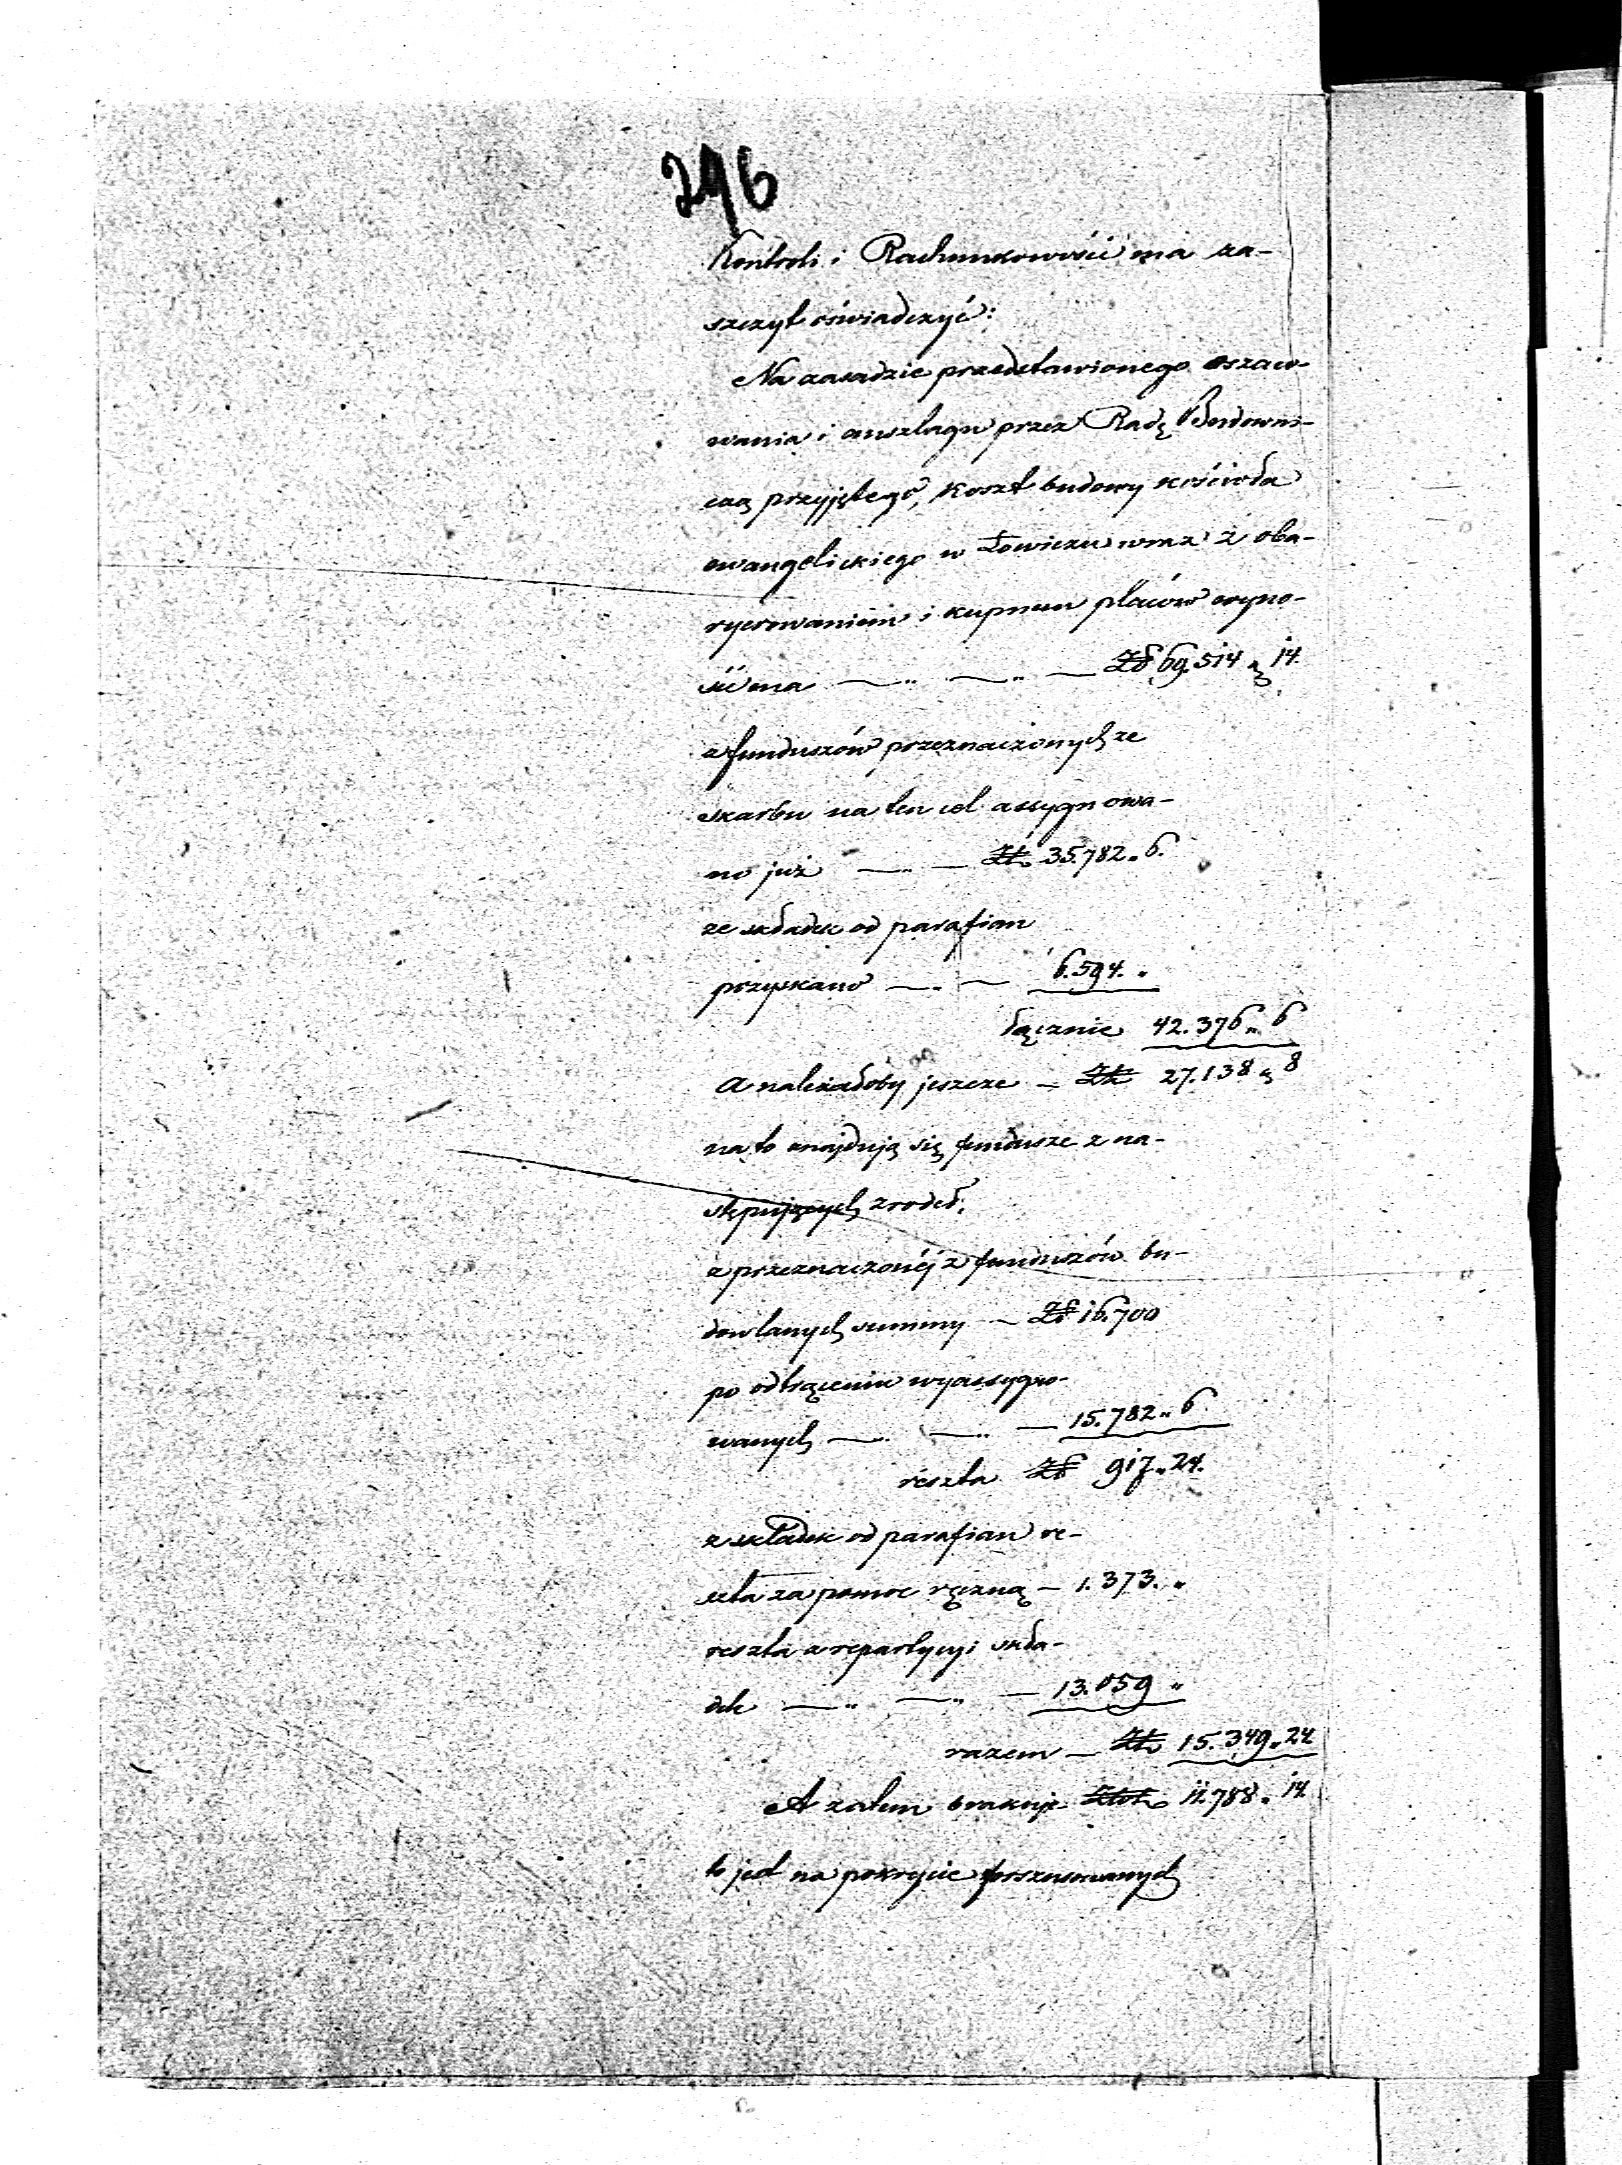 296
Kontroli i Rachunkowości ma za-
szczyt oświadczyć:
Na zasadzie przedstawionego oszaco-
wania i anszlagu przez Radę Budowni-
czą przyjętego, koszt budowy kościoła
ewangelickiego w Łowiczu wraz z oba-
rycrowaniem i kupnem placów wyno-
sić ma —„ —„ — Zł 69.514 „ 14.
z funduszów przeznaczonych ze
skarbu na ten cel assygnowa-
no już —„ — Zł. 35.782 „ 6.
ze składek od parafian
pozyskano —„ — 6.594. „
łącznie 42.376 „ 6
A należałoby jeszcze — Zł 27.138 „ 8
na to znajdują się fundusze z na-
stępujących zrodeł,
z przeznaczonéj z funduszów bu-
dowlanych summy — Zł 16.700
po odtrąceniu wyassygno-
wanych —„ —„ — 15.782 „ 6
reszta Zł 917 „ 24.
z składek od parafian re-
szta za pomoc ręczną — 1.373. „
reszta z repartycyi skła-
dek —„ —„ — 13.059 „
razem — Zł 15.349 „ 24
A zatem brakuje Złot 11.788 „ 14
to jest na pokrycie forszusowanych